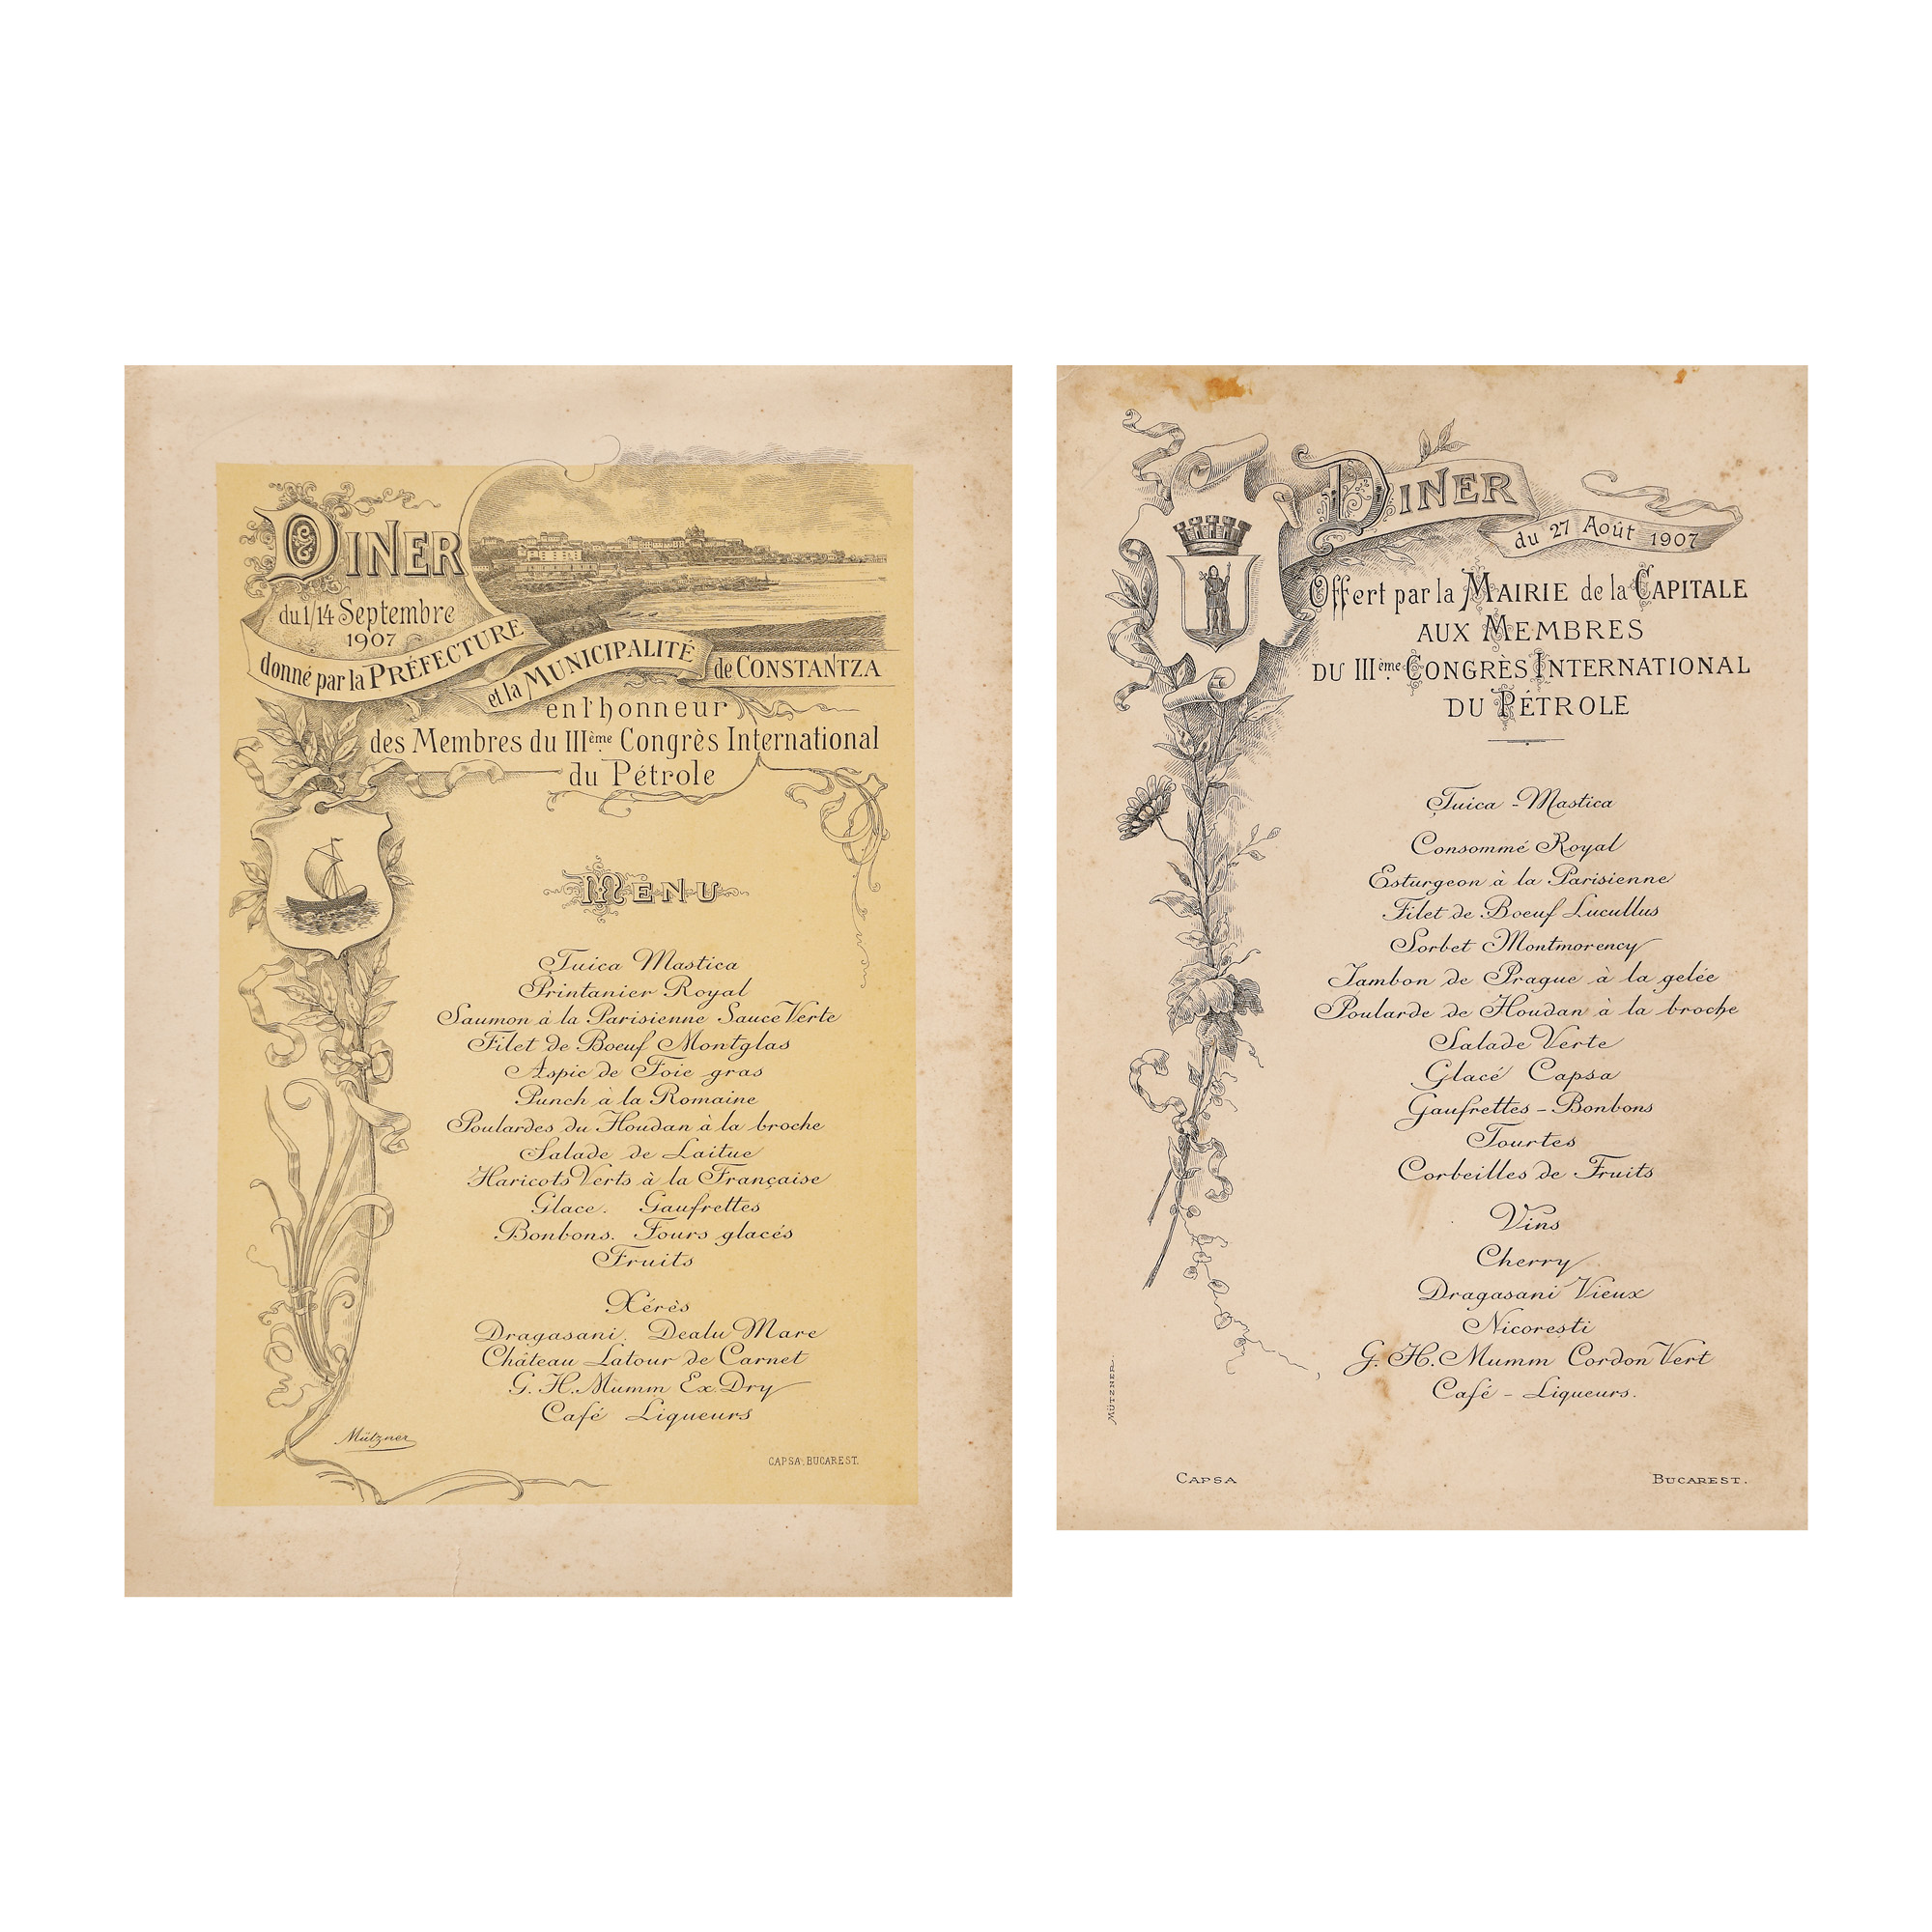 DINER
du 1/14 Septembre
1907
donné par la PRÉFECTURE
et la MUNICIPALITÉ
de CONSTANTZA
en l'honneur
des Membres du IIIème Congrès International
du Pétrole
MENU
Ţuica Mastica
Printanier Royal
Saumon à la Parisienne Sauce Verte
Filet de Boeuf Montglas
Aspic de Foie gras
Punch à la Romaine
Poulardes du Houdan à la broche
Salade de Laitue
Haricots Verts à la Française
Glace. Gaufrettes
Bonbons. Fours glacés
Fruits
Xérès
Dragasani. Dealu Mare
Château Latour de Carnet
G. H. Mumm Ex. Dry
Café Liqueurs
Mützner
CAPSA. BUCAREST.
DINER
du 27 Août 1907
Offert par la MAIRIE de la CAPITALE
AUX MEMBRES
DU IIIème CONGRÈS INTERNATIONAL
DU PÉTROLE
Ţuica - Mastica
Consommé Royal
Esturgeon à la Parisienne
Filet de Boeuf Lucullus
Sorbet Montmorency
Jambon de Prague à la gelée
Poularde de Houdan à la broche
Salade Verte
Glacé Capsa
Gaufrettes - Bonbons
Tourtes
Corbeilles de Fruits
Vins
Cherry
Dragasani Vieux
Nicoreşti
G. H. Mumm Cordon Vert
Café - Liqueurs.
MÜTZNER.
CAPSA BUCAREST.